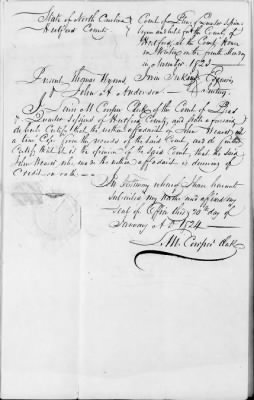 State of North Carolina
Hertford County
Court of Pleas & Quarter Sessions
begun and held for the County of
Hertford, at the Court House
in Winton on the fourth Monday
in November 1823
Present Thomas Wynns
John H Anderson
Esquires
Justices
I Lewis M Cowper Clerk of the Court of Pleas
& Quarter Sessions of Hertford County, and State aforesaid
do hereby Certify that the within affidavit of John is
a true Copy from the records of the said Court, and do further
Certify that it is the opinion of the said Court, that the said
John who made the within affidavit is deserving of
Credit on oath
In testimony whereof I have hereunto
subscribed my name and affixed my
seal of Office this 20th day of
January A D 1824
L. M. Cowper Clk